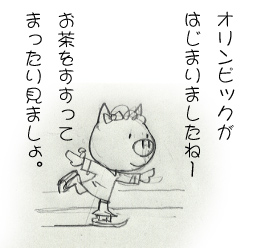 オリンピックが
はじまりましたねー
お茶をすすって
まったり見ましょ。